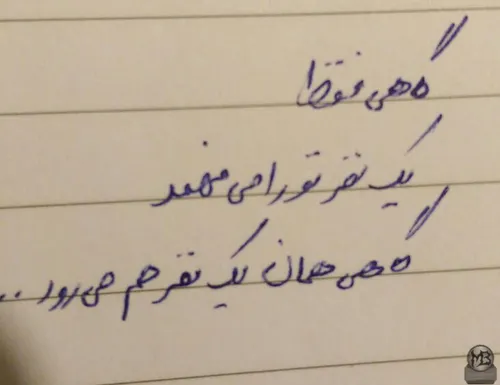 گاهی فقط
یک نفر تو را می فهمد
گاهی همان یک نفر هم می رود ..
MB